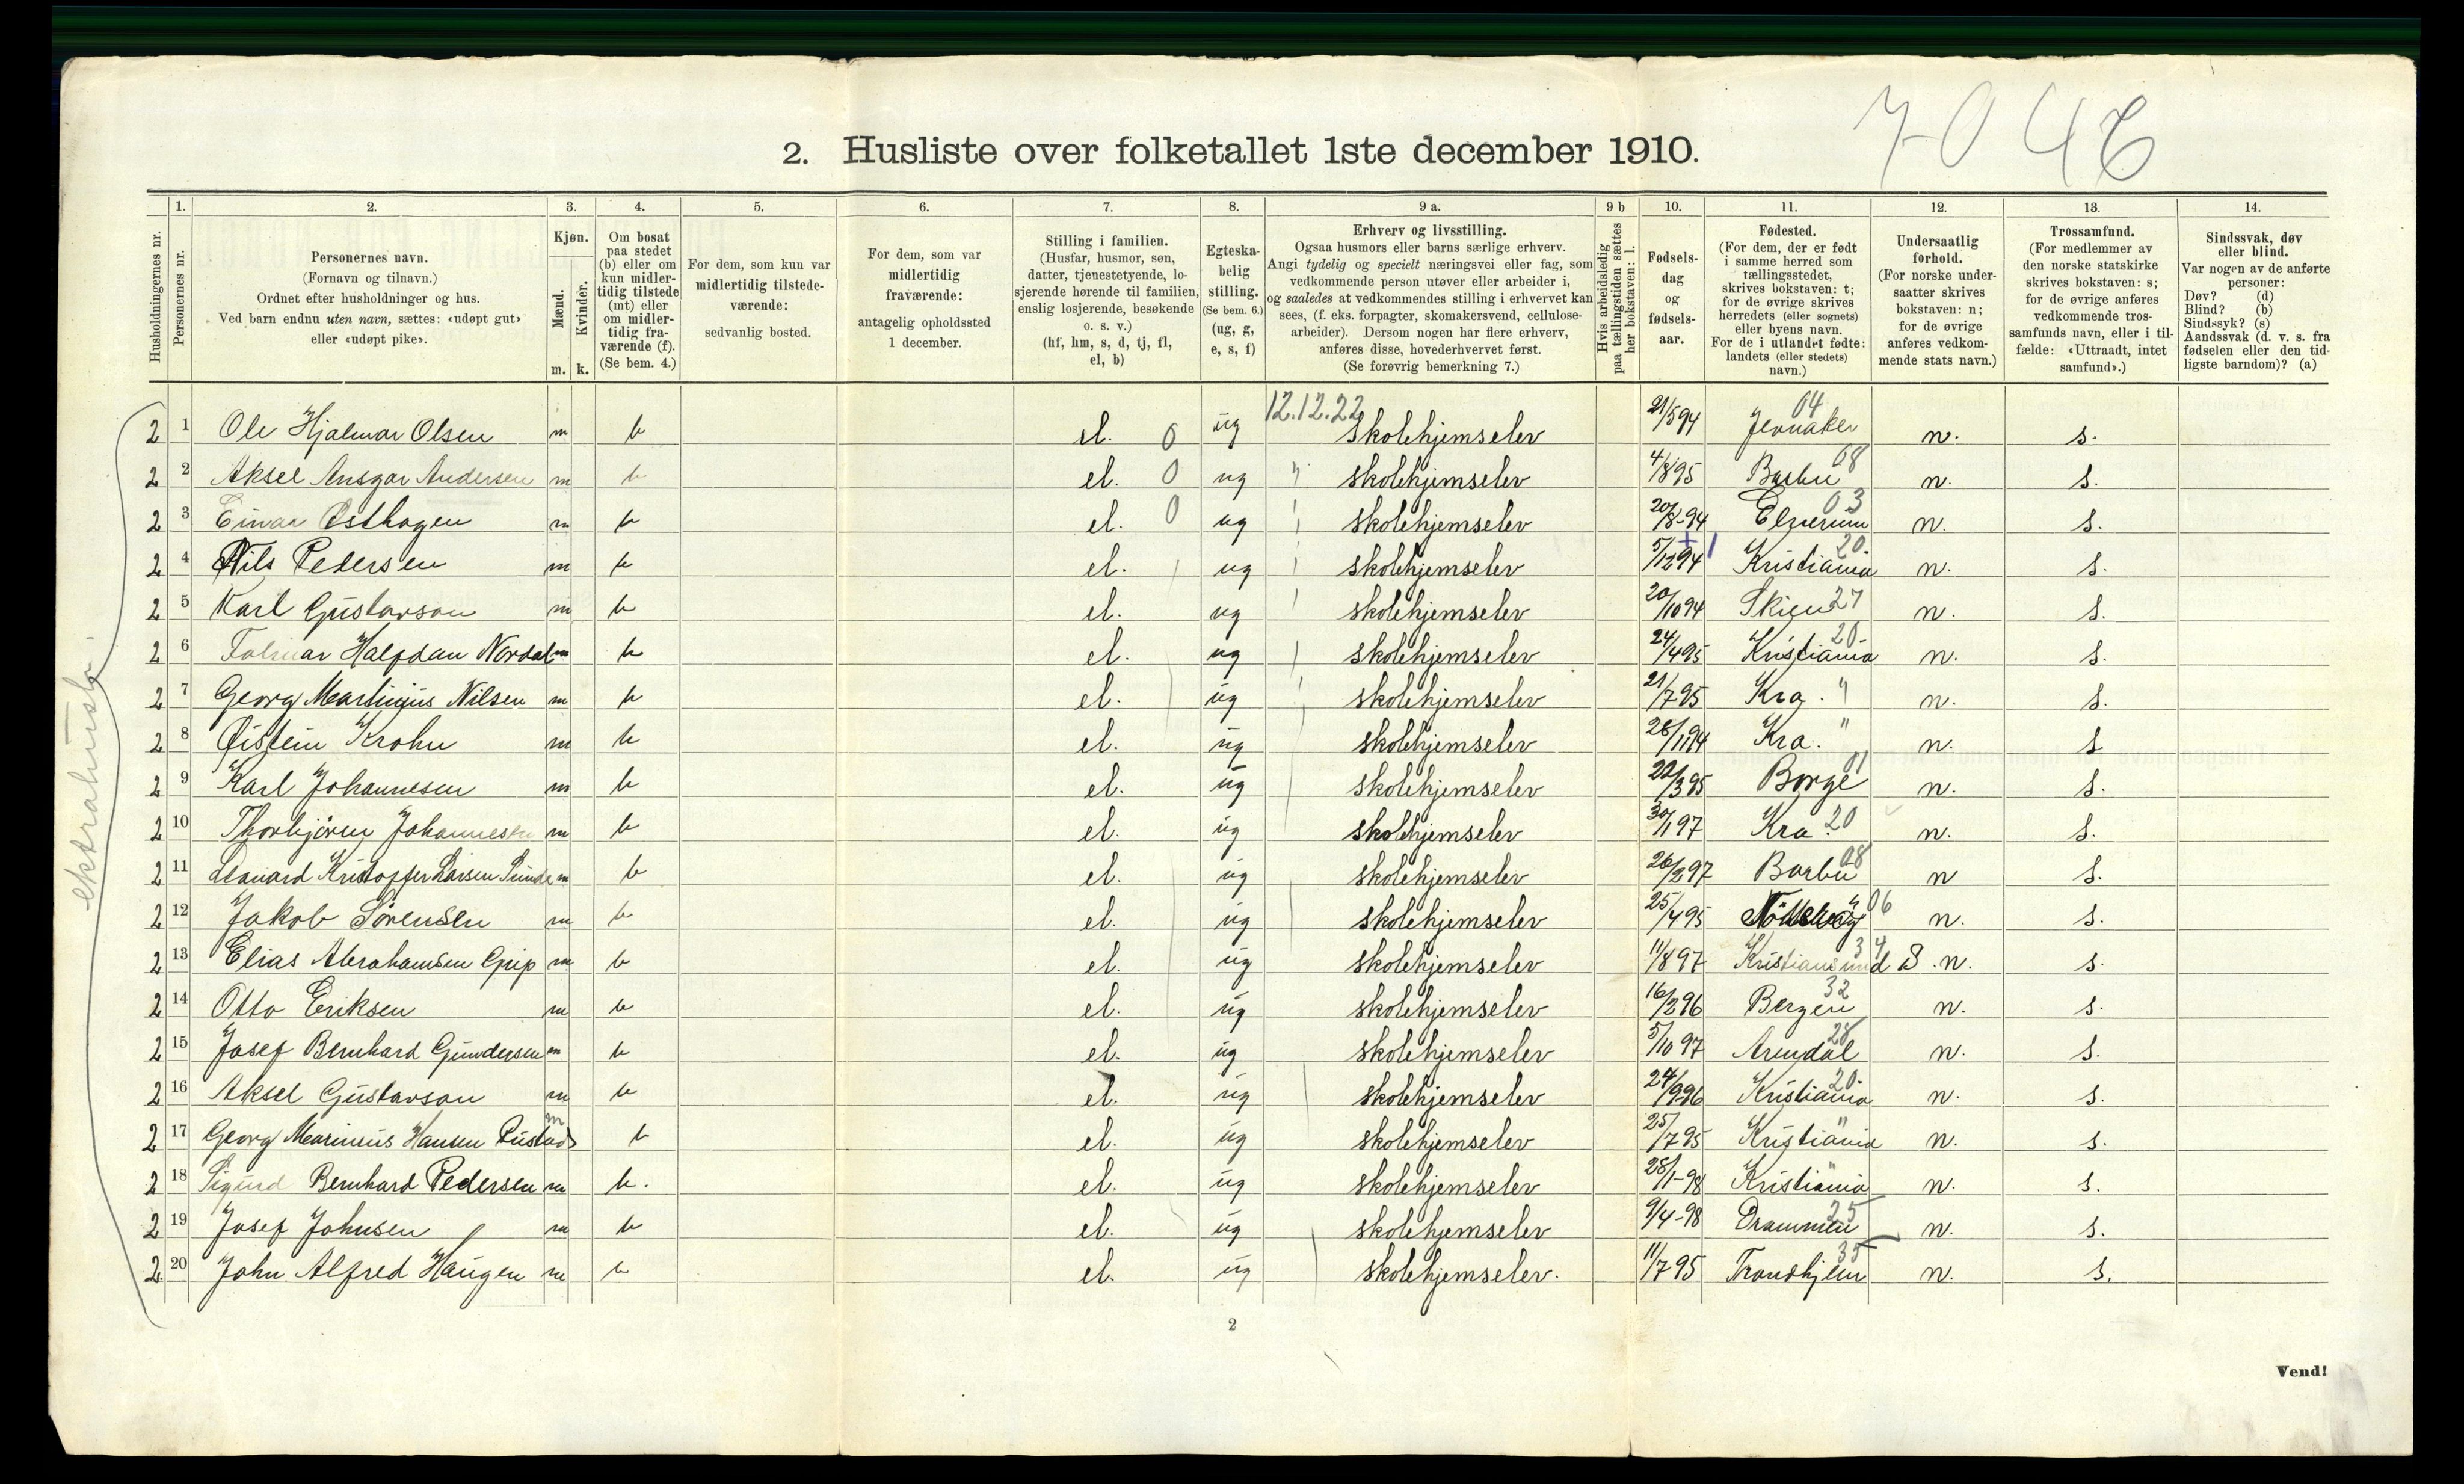 7046
2. Husliste over folketallet 1ste december 1910.
Husholdningernes nr.
1. Personernes nr.
2. Personernes navn.
(Fornavn og tilnavn.)
Ordnet efter husholdninger og hus.
Ved barn endnu uten navn, sættes: «udøpt gut»
eller «udøpt pike».
3. Kjøn.
Mænd. Kvinder.
m. k.
4. Om bosat
paa stedet
(b) eller om
kun midler-
tidig tilstede
(mt) eller
om midler-
tidig fra-
værende (f).
(Se bem. 4.)
5. For dem, som kun var
midlertidig tilstede-
værende:
sedvanlig bosted.
6. For dem, som var
midlertidig
fraværende:
antagelig opholdssted
1 december.
7. Stilling i familien.
(Husfar, husmor, søn,
datter, tjenestetyende, lo-
sjerende hørende til familien,
enslig losjerende, besøkende
o. s. v.)
(hf, hm, s, d, tj, fl,
el, b)
8. Egteska-
belig
stilling.
(Se bem. 6.)
(ug, g,
e, s, f)
9 a. Erhverv og livsstilling.
Ogsaa husmors eller barns særlige erhverv.
Angi tydelig og specielt næringsvei eller fag, som
vedkommende person utøver eller arbeider i,
og saaledes at vedkommendes stilling i erhvervet kan
sees, (f. eks. forpagter, skomakersvend, cellulose-
arbeider). Dersom nogen har flere erhverv,
anføres disse, hovederhvervet først.
(Se forøvrig bemerkning 7.)
9 b Hvis arbeidsledig
paa tællingstiden sættes
her bokstaven: l.
10. Fødsels-
dag
og
fødsels-
aar.
11. Fødested.
(For dem, der er født
i samme herred som
tællingsstedet,
skrives bokstaven: t;
for de øvrige skrives
herredets (eller sognets)
eller byens navn.
For de i utlandet fødte:
landets (eller stedets)
navn.)
12. Undersaatlig
forhold.
(For norske under-
saatter skrives
bokstaven: n;
for de øvrige
anføres vedkom-
mende stats navn.)
13. Trossamfund.
(For medlemmer av
den norske statskirke
skrives bokstaven: s;
for de øvrige anføres
vedkommende tros-
samfunds navn, eller i til-
fælde: «Uttraadt, intet
samfund».)
14. Sindssvak, døv
eller blind.
Var nogen av de anførte
personer:
Døv? (d)
Blind? (b)
Sindssyk? (s)
Aandssvak (d. v. s. fra
fødselen eller den tid-
ligste barndom)? (a)
ekstrahusl.
2 1 Ole Hjalmar Olsen m b el. 0 ug 12.12.22 Skolehjemselev 21/5 94 Jevnaker 04 n. s.
2 2 Aksel Ansgar Andersen m b el. 0 ug " skolehjemselev 4/8 95 Barbu 08 n. s.
2 3 Einar Østhagen m b el. 0 ug skolehjemselev 20/8-94 Elverum 03 n. s.
2 4 Nils Pedersen m b el. ug skolehjemselev 5/12 94 Kristiania 20. n. s.
2 5 Karl Gustavson m b el. ug skolehjemselev 20/10 94 Skien 27 n. s.
2 6 Halfdan Nordal m b el. ug skolehjemselev 24/4 95 Kristiania 20. n. s.
2 7 Georg Martinius Nilsen m b el. ug skolehjemselev 21/7 95 Kra. " n. s.
2 8 Øistein Krohn m b el. ug skolehjemselev 26/11 94 Kra. " n. s
2 9 Karl Johannesen m b el. ug skolehjemselev 22/3 95 Borge 01 n. s.
2 10 Thorbjørn Johannesen m b el. ug skolehjemselev 30/1 97 Kra. 20 n. s.
2 11 Leonard Kristoffer Larsen m b el. ug skolehjemselev 26/2 97 Barbu 08 n s.
2 12 Jakob Sørensen m b el. ug skolehjemselev 25/4 95 Nøtterøy 06 n. s.
2 13 Elias Abrahamsen Grip m b el. ug skolehjemselev 11/8 97 Kristiansund 34 n. s.
2 14 Otto Eriksen m b el. ug skolehjemselev 16/2 96 Bergen 32 n. s.
2 15 Josef Bernhard Gundersen m b el. ug skolehjemselev 5/10 97 Arendal 28 n. s.
2 16 Aksel Gustavson m b el. ug skolehjemselev 24/9 96 Kristiania 20. n. s.
2 17 Georg Marinius Hansen Rustad m b el. ug skolehjemselev 25/7 95 Kristiania " n. s.
2 18 Sigurd Bernhard Pedersen m b. el. ug skolehjemselev 28/1-98 Kristiania " n. s.
2 19 Josef Johnsen m b el. ug skolehjemselev 9/4-98 Drammen 25 n. s.
2 20 John Alfred Haugen m b el. ug skolehjemselev. 11/7 95 Trondhjem 35 n. s.
2
Vend!